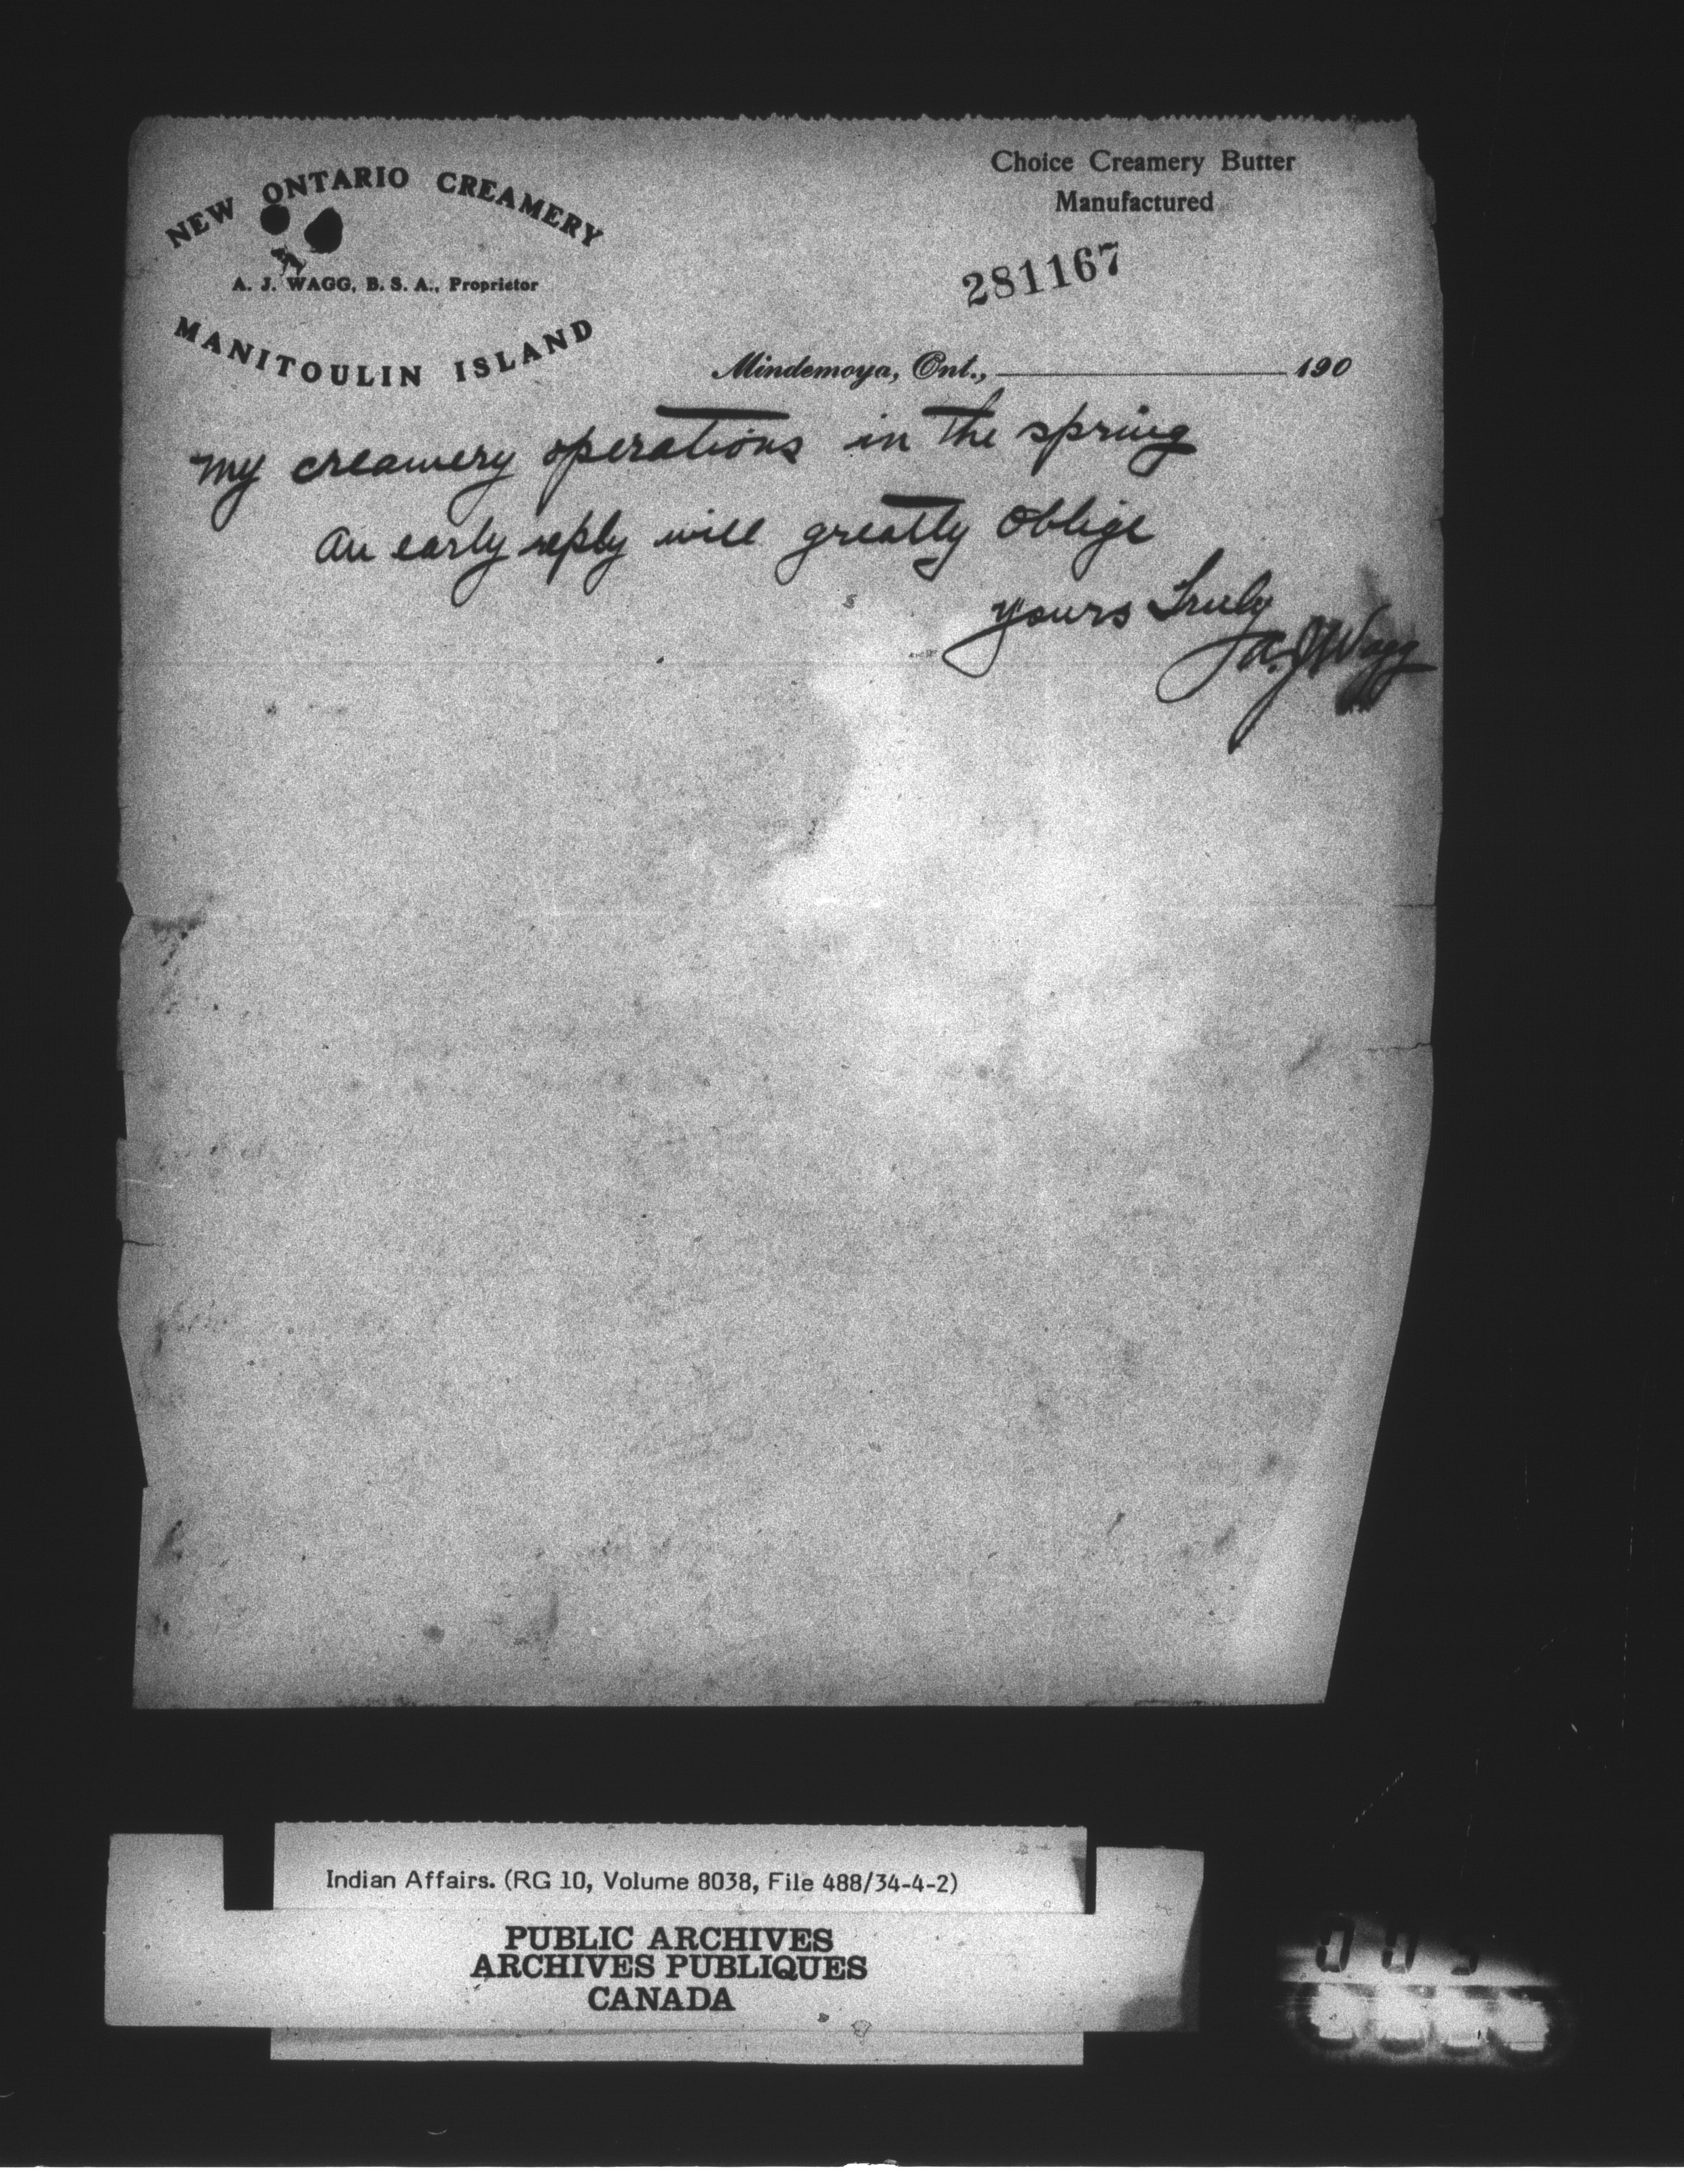 NEW ONTARIO CREAMERY
A. J. WAGG, B. S. A., Proprietor
MANITOULIN ISLAND
Choice Creamery Butter
Manufactured
281167
Mindemoya, Ont., 190
my creamery operations in the spring
An early reply will greatly oblige
yours Truly
A. J. Wagg
Indian Affairs. (RG 10, Volume 8038, File 488/34-4-2)
PUBLIC ARCHIVES
ARCHIVES PUBLIQUES
CANADA